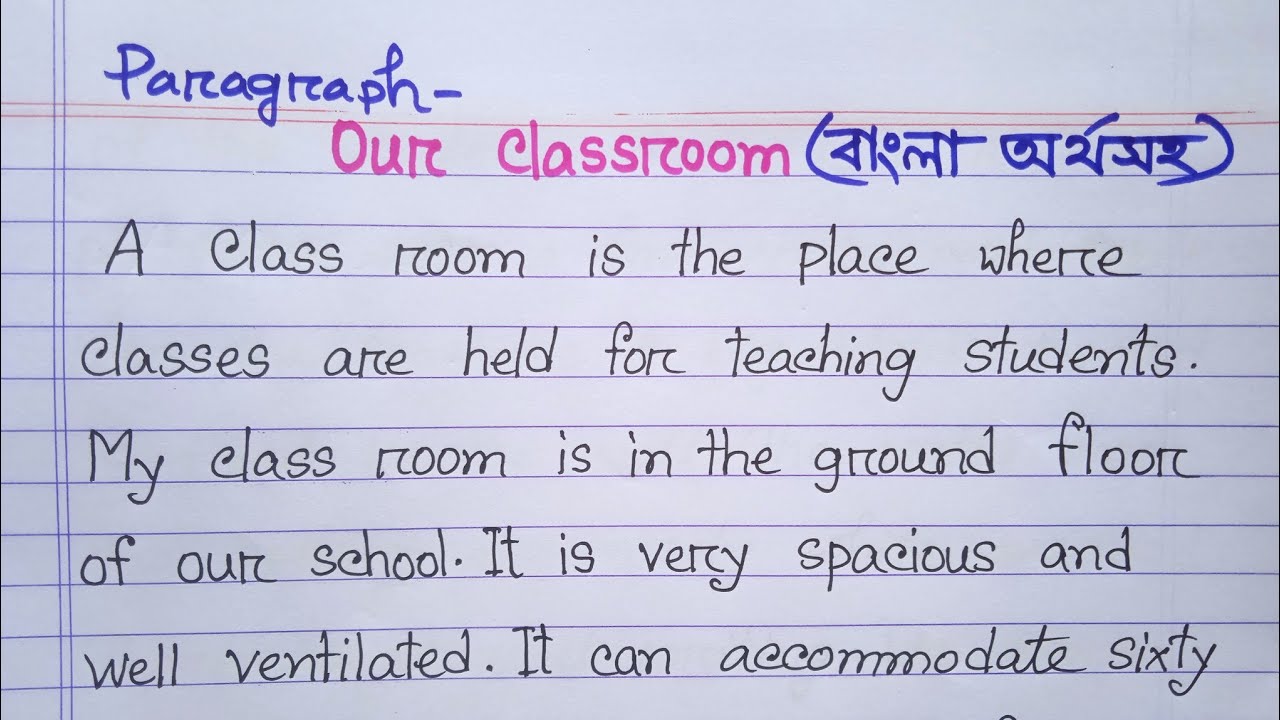 Paragraph-
Our Classroom (বাংলা অর্থসহ)
A Class room is the place where
classes are held for teaching students.
My class room is in the ground floor
of our school. It is very spacious and
well ventilated. It can accommodate sixty